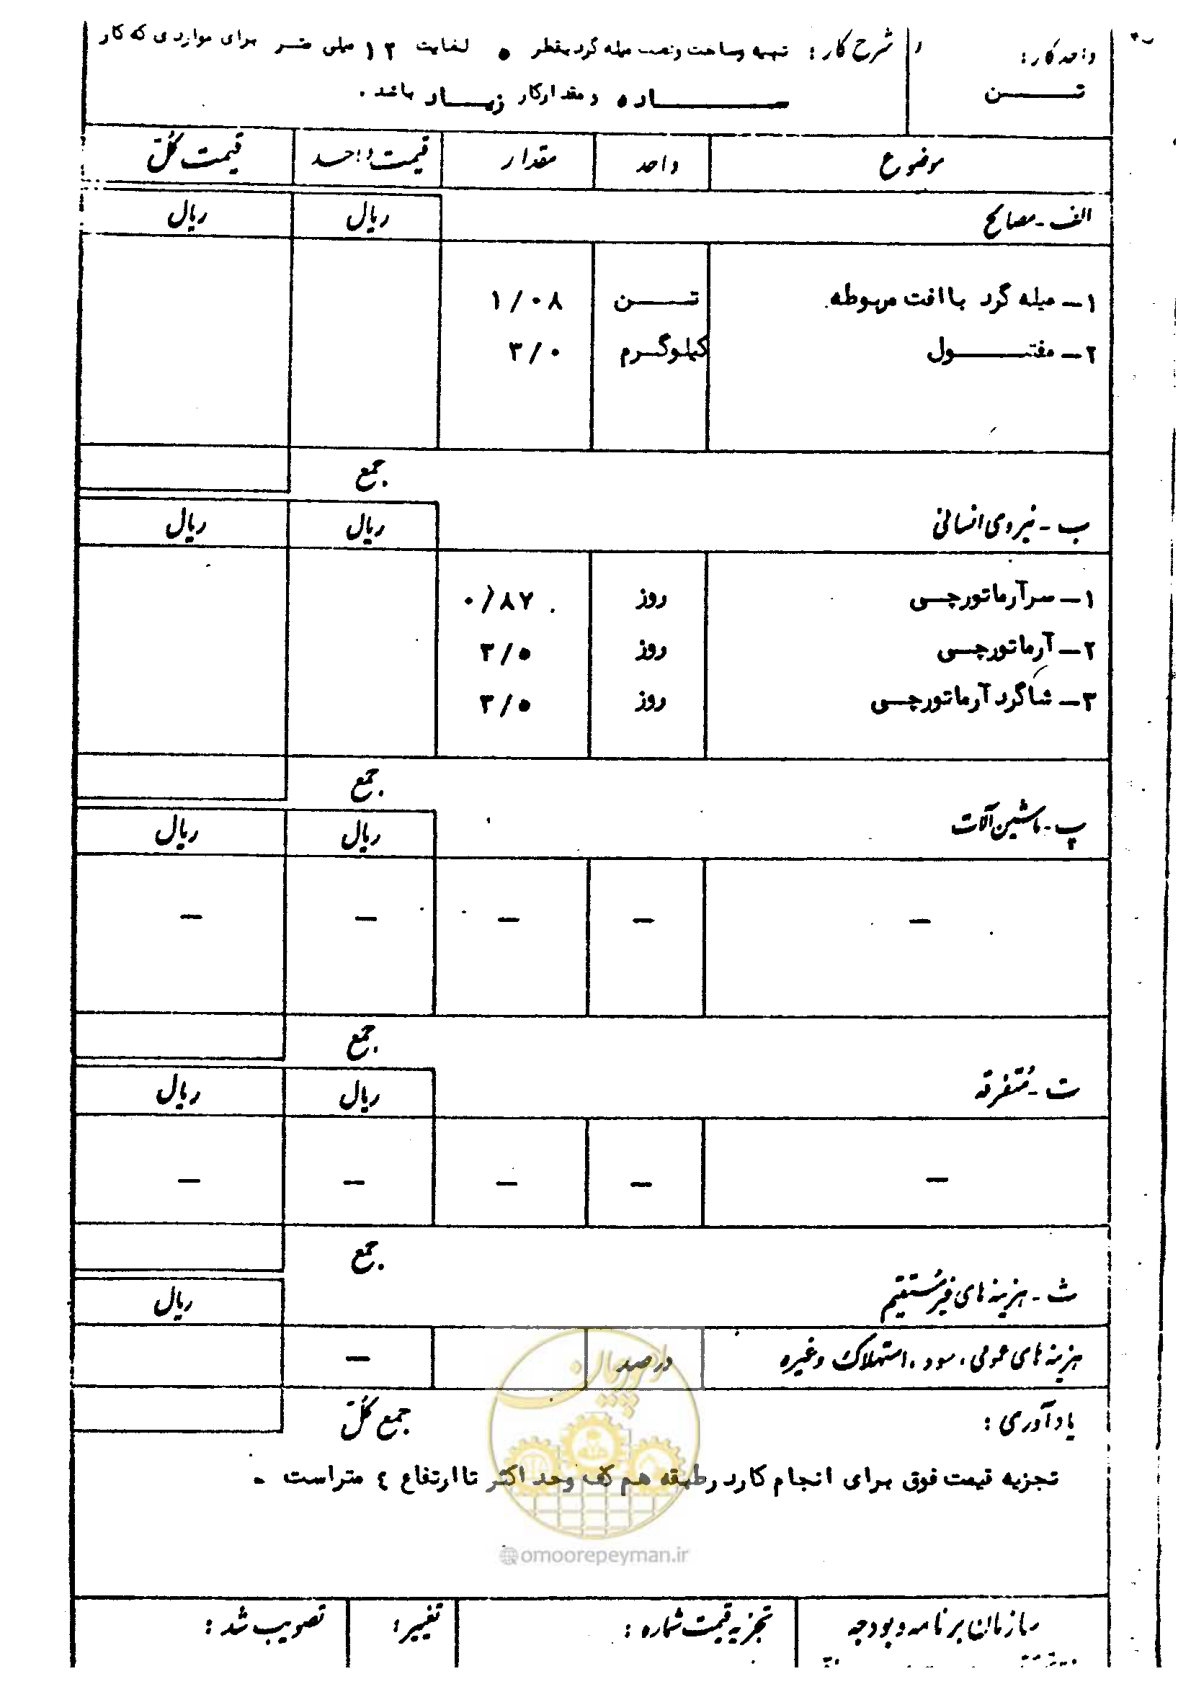 واحد کار :
شرح کار : تهیه وساخت ونصب میله گرد بقطر ۵ لغایت ۱۲ میلی متر برای مواردی که کار
تــن
ســاده و مقدار کار زیــاد باشد .
موضوع واحد مقدار قیمت واحد قیمت کل
الف - مصالح ریال ریال
۱ - میله گرد با افت مربوطه تــن ۱/۰۸
۲ - مفتــول کیلوگرم ۳/۰
جمع
ب - نیروی انسانی ریال ریال
۱ - سرآرماتورچی روز ۰/۸۷
۲ - آرماتورچی روز ۳/۵
۳ - شاگرد آرماتورچی روز ۳/۵
جمع
پ - ماشین آلات ریال ریال
— — — — —
جمع
ت - متفرقه ریال ریال
— — — — —
جمع
ث - هزینه های غیرمستقیم ریال
هزینه های عمومی ، سود ، استهلاک وغیره درصد —
یادآوری : جمع کل
تجزیه قیمت فوق برای انجام کار در طبقه هم کف وحد اکثر تا ارتفاع ٤ متر است -
امور پیمان
@omoorepeyman.ir
سازمان برنامه و بودجه تجزیه قیمت شماره : تغییر : تصویب شد :